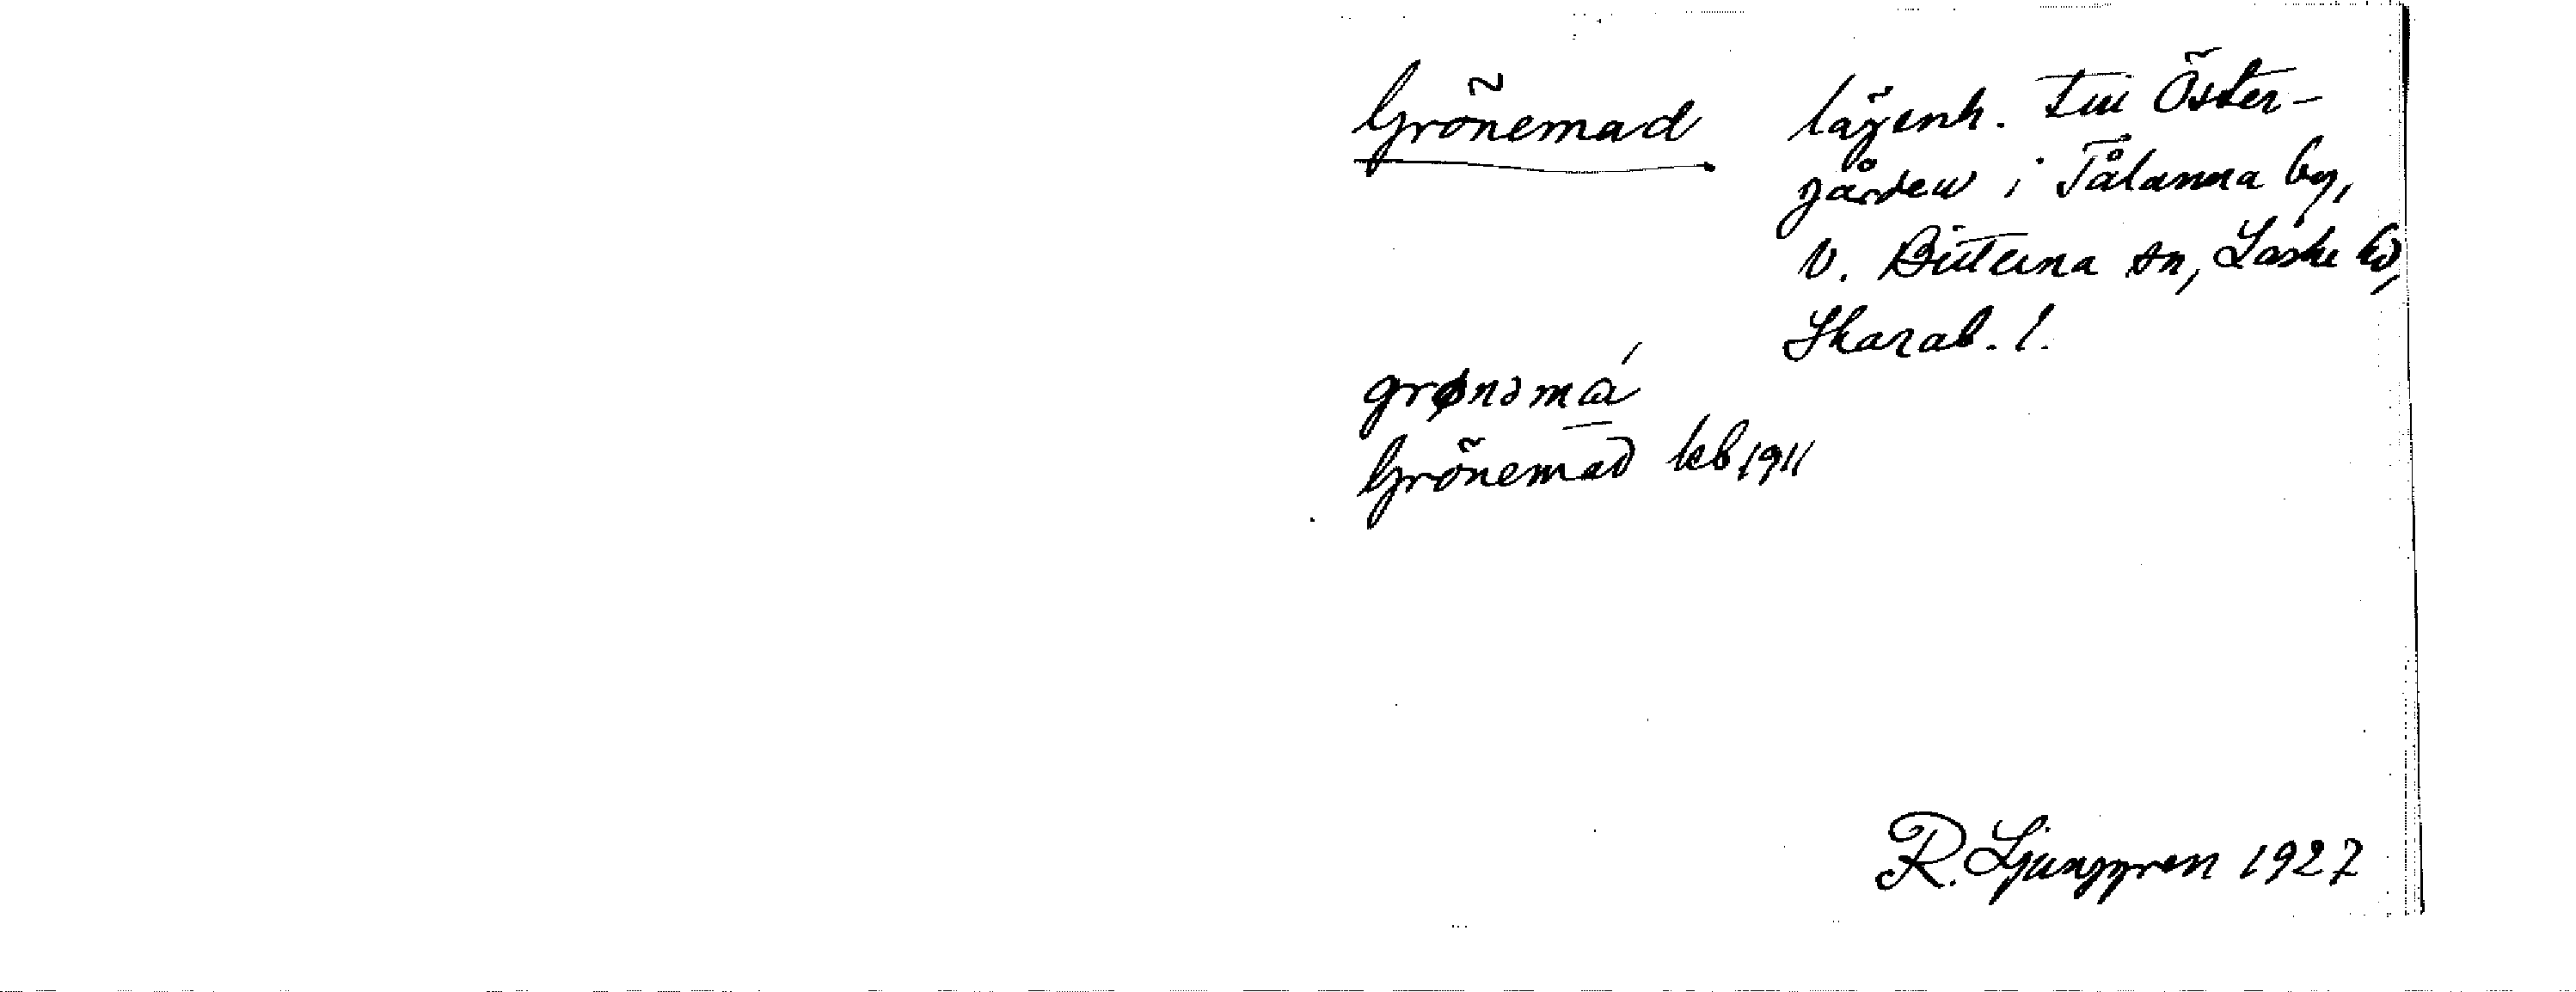 Grönemad lägenh. till Öster-
gården i Tålanna by,
V. Bitterna sn, Laske hd,
Skarab. l.
grønəmá
Grönemad kb 1911
R. Ljunggren 1927